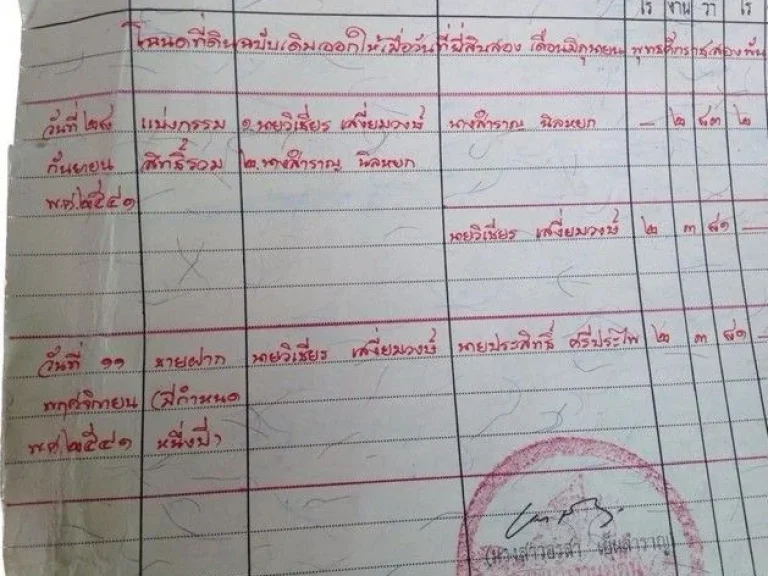 ไร่ งาน วา ไร่
โฉนดที่ดินฉบับเดิมออกให้เมื่อวันที่ยี่สิบสอง เดือนมิถุนายน พุทธศักราชสองพัน
วันที่ ๒๘ แบ่งกรรม ๑. นายวิเชียร เสงี่ยมวงษ์ นางสำราญ นิลหยก – ๒ ๘๓ ๒
กันยายน สิทธิ์รวม ๒. นางสำราญ นิลหยก
พ.ศ. ๒๕๔๑
นายวิเชียร เสงี่ยมวงษ์ ๒ ๓ ๘๑ –
วันที่ ๑๑ ขายฝาก นายวิเชียร เสงี่ยมวงษ์ นายประสิทธิ์ ศรีประไพ ๒ ๓ ๘๑ –
พฤศจิกายน (มีกำหนด
พ.ศ. ๒๕๔๑ หนึ่งปี)
(นางสาวอรสา เย็นสำราญ)